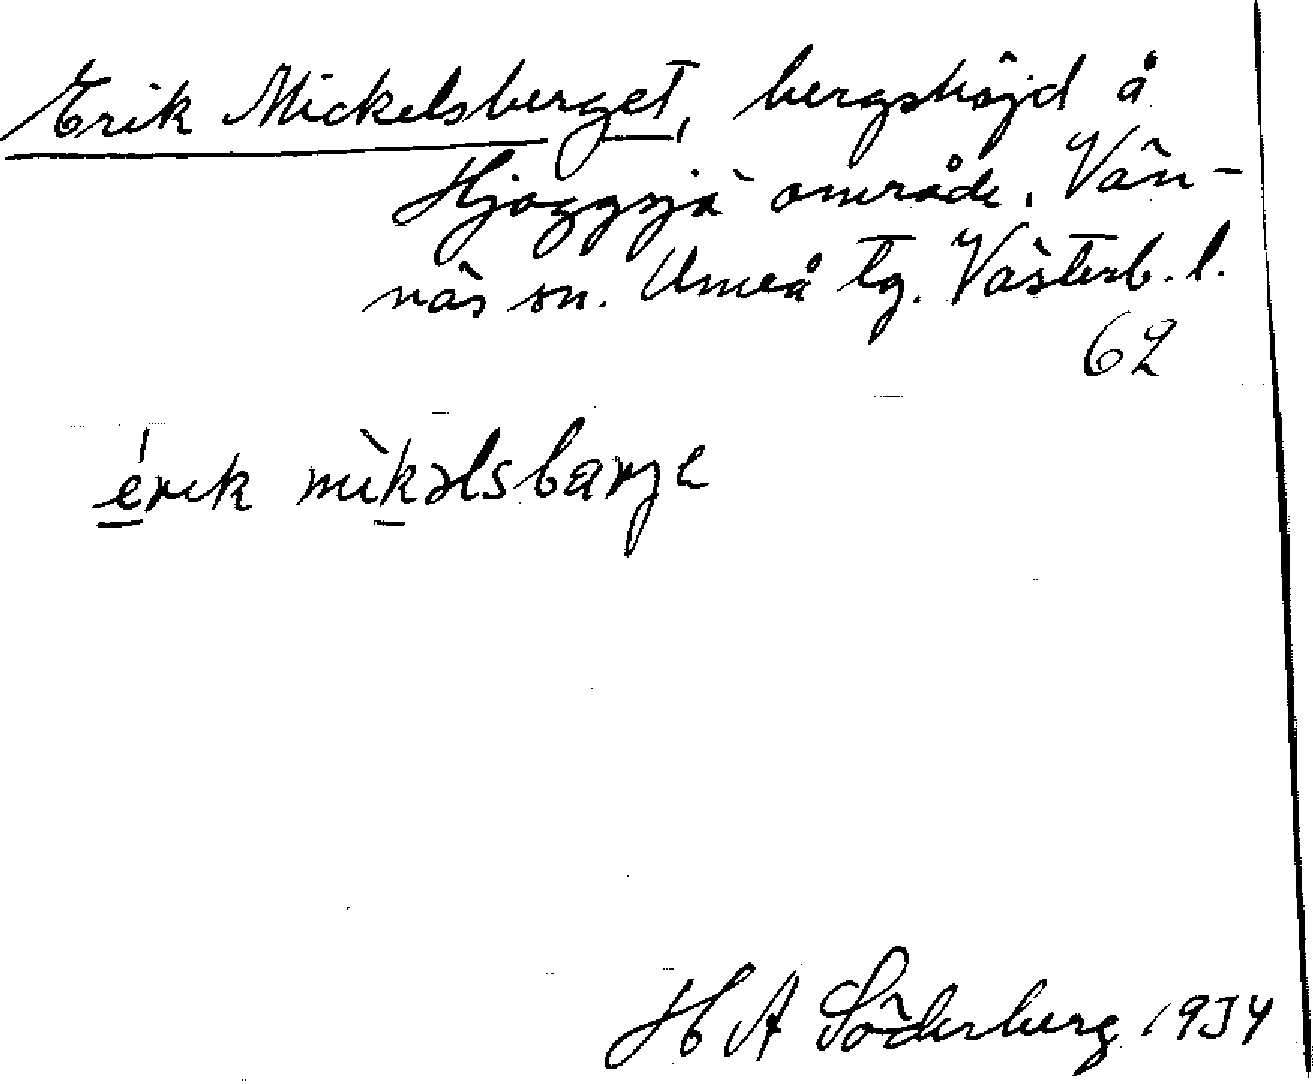 Erik Mickelsberget, bergshöjd å
Hjåggsjö område, Vän-
näs sn. Umeå tg. Västerb. l.
62
érik mìkəlsbarje
H A Söderberg 1934